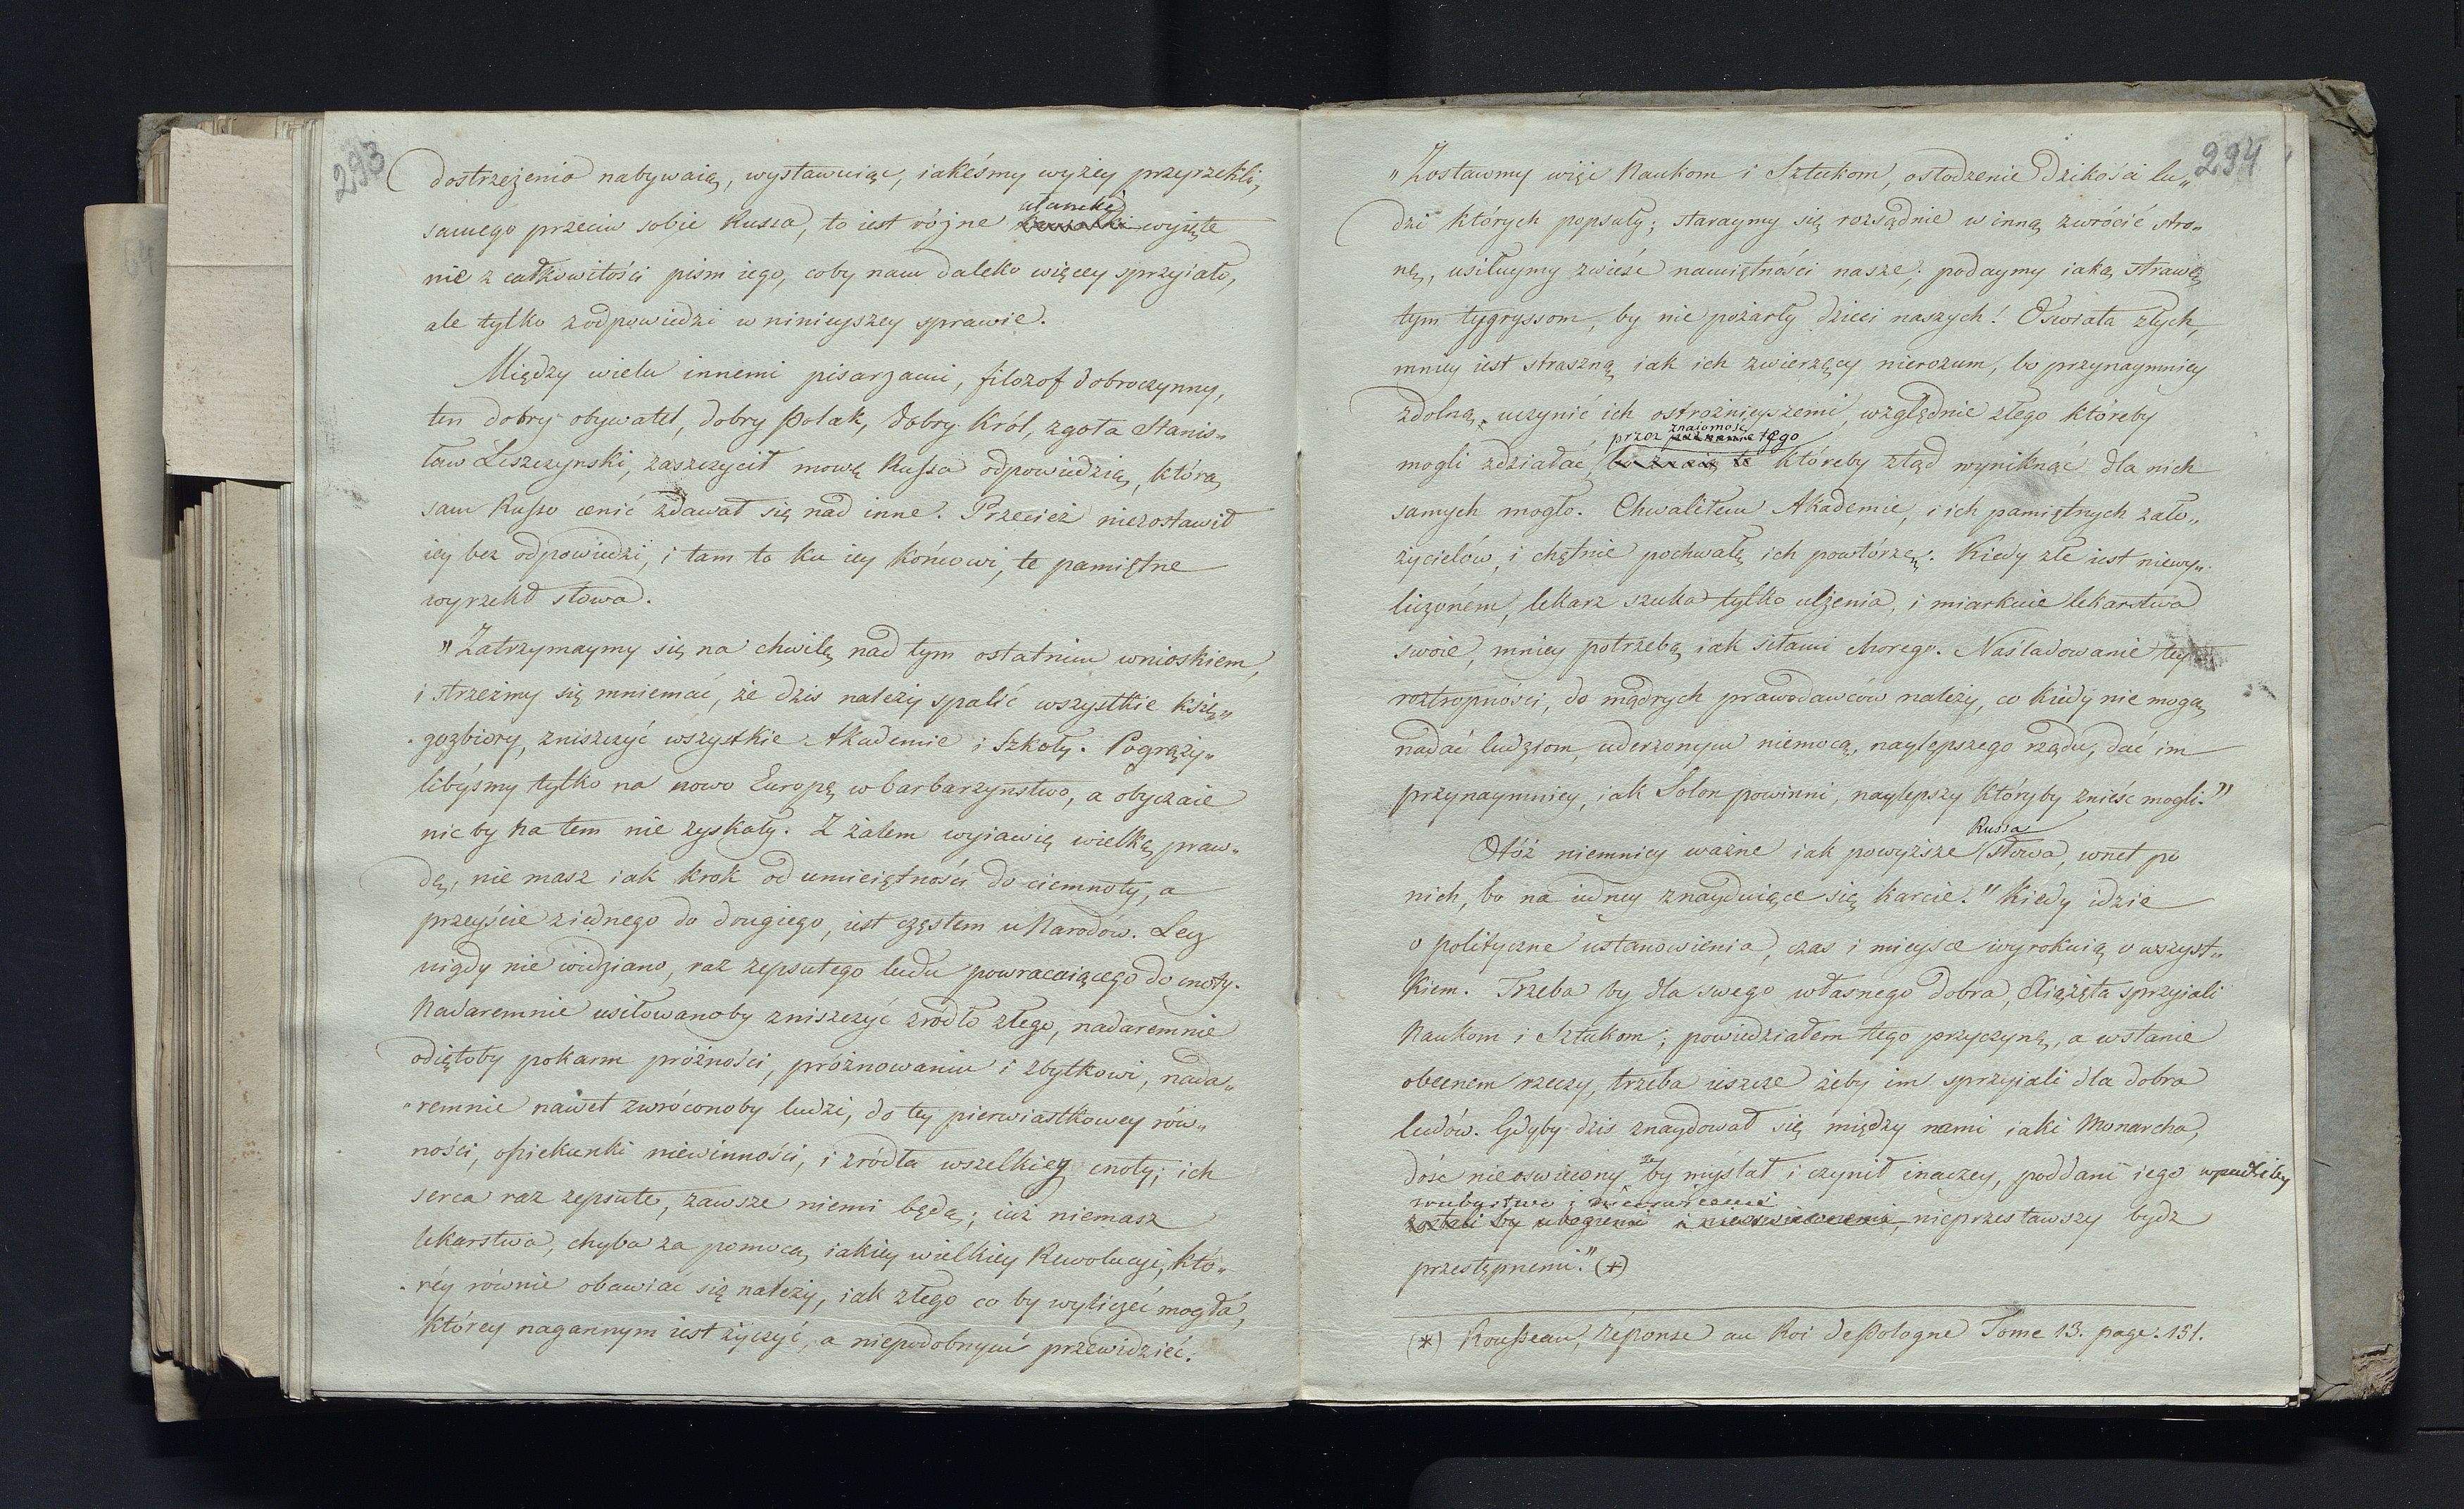 293
dostrzeżenia nabywaią, wystawuiąc, iakeśmy wyżey przyrzekli,
ułamki
samego przeciw sobie Russa, to iest różne wyięte
nie z całkowitości pism iego, coby nam daleko więcey sprzyiało,
ale tylko z odpowiedzi w ninieyszey sprawie.
Między wielu innemi pisarzami, filozof dobroczynny,
ten dobry obywatel, dobry Polak, dobry Król, zgoła Stanis„
ław Leszczynski, zaszczycił mowę Russa odpowiedzią, którą
sam Russo cenić zdawał się nad inne. Przecież niezostawił
iey bez odpowiedzi, i tam to ku iey końcowi, te pamiętne
wyrzekł słowa.
"Zatrzymaymy się na chwilę nad tym ostatnim wnioskiem,
i strzeżmy się mniemać, że dzis należy spalić wszystkie księ„
gozbiory, zniszczyć wszystkie Akademie i Szkoły. Pogrąży„
libyśmy tylko na nowo Europę w barbarzynstwo, a obyczaie
nic by na tem nie zyskały. Z żalem wyiawię wielką praw„
dę, nie masz iak krok od umieiętności do ciemnoty, a
przeyście z iednego do drugiego, iest częstem u Narodów. Lecz
nigdy nie widziano, raz zepsutego ludu powracaiącego do cnoty.
Nadaremnie usiłowanoby zniszczyć zrodło złego, nadaremnie
odiętoby pokarm próżności, próżnowaniu i zbytkowi, nada„
remnie nawet zwróconoby ludzi, do tey pierwiastkowey rów„
ności, opiekunki niewinności, i zródła wszelkiey cnoty; ich
serca raz zepsute, zawsze niemi będą; iuż niemasz
lekarstwa, chyba za pomocą iakiey wielkiey Rewolucyi, któ„
réy równie obawiać się należy, iak złego co by wyliczeć mogła,
którey nagannym iest życzyć, a niepodobnym przewidzieć.
294
"Zostawmy więc Naukom i Sztukom, osłodzenie dzikości lu„
dzi których popsuły; staraymy się rozsądnie w inną zwrócić stro„
nę, usiłuymy zwieść namiętności nasze; podaymy iaką strawę
tym tygryssom, by nie pożarły dzieci naszych! Oswiata złych,
mniey iest straszną iak ich zwierzęcy nierozum, bo przynaymniey
zdolną uczynić ich ostrożnieyszemi, względnie złego któreby
przez znaiomość tego
mogli zdziałać, bo znaią te któreby ztąd wyniknąć dla nich
samych mogło. Chwaliłem Akademie, i ich pamiętnych zało„
życielów, i chętnie pochwałę ich powtórzę. Kiedy złe iest niewy„
liczoném, lekarz szuka tylko ulżenia, i miarkuie lekarstwa
swoie, mniey potrzebą iak siłami chorego. Naśladowanie tey
roztropności, do mądrych prawodawców należy, co kiedy nie mogą
nadać ludziom uderzonym niemocą, naylepszego rządu, dać im
przynaymniey, iak Solon powinni, naylepszy któryby znieść mogli."
Russa
Otóż niemniey ważne iak powyższe słowa, wnet po
nich, bo na iedney znayduiące się karcie. "Kiedy idzie
o polityczne ustanowienia, czas i mieysce wyrokuią o wszyst„
kiem. Trzeba by dla swego własnego dobra, Xiążęta sprzyiali
Naukom i Sztukom; powiedziałem tego przyczynę, a w stanie
obecnem rzeczy, trzeba ieszcze żeby im sprzyiali dla dobra
ludów. Gdyby dzis znaydował się między nami iaki Monarcha,
dość nieoswiecony że by myślał i czynił inaczey, poddani iego wpadliby
w ubóstwo i nieoswiecenie
zostali by ubogiemi i nieoswieconemi, nieprzestawszy bydz
przestępnemi." (*)
(*) Rousseau, réponse au Roi de Pologne Tome 13. page. 151.